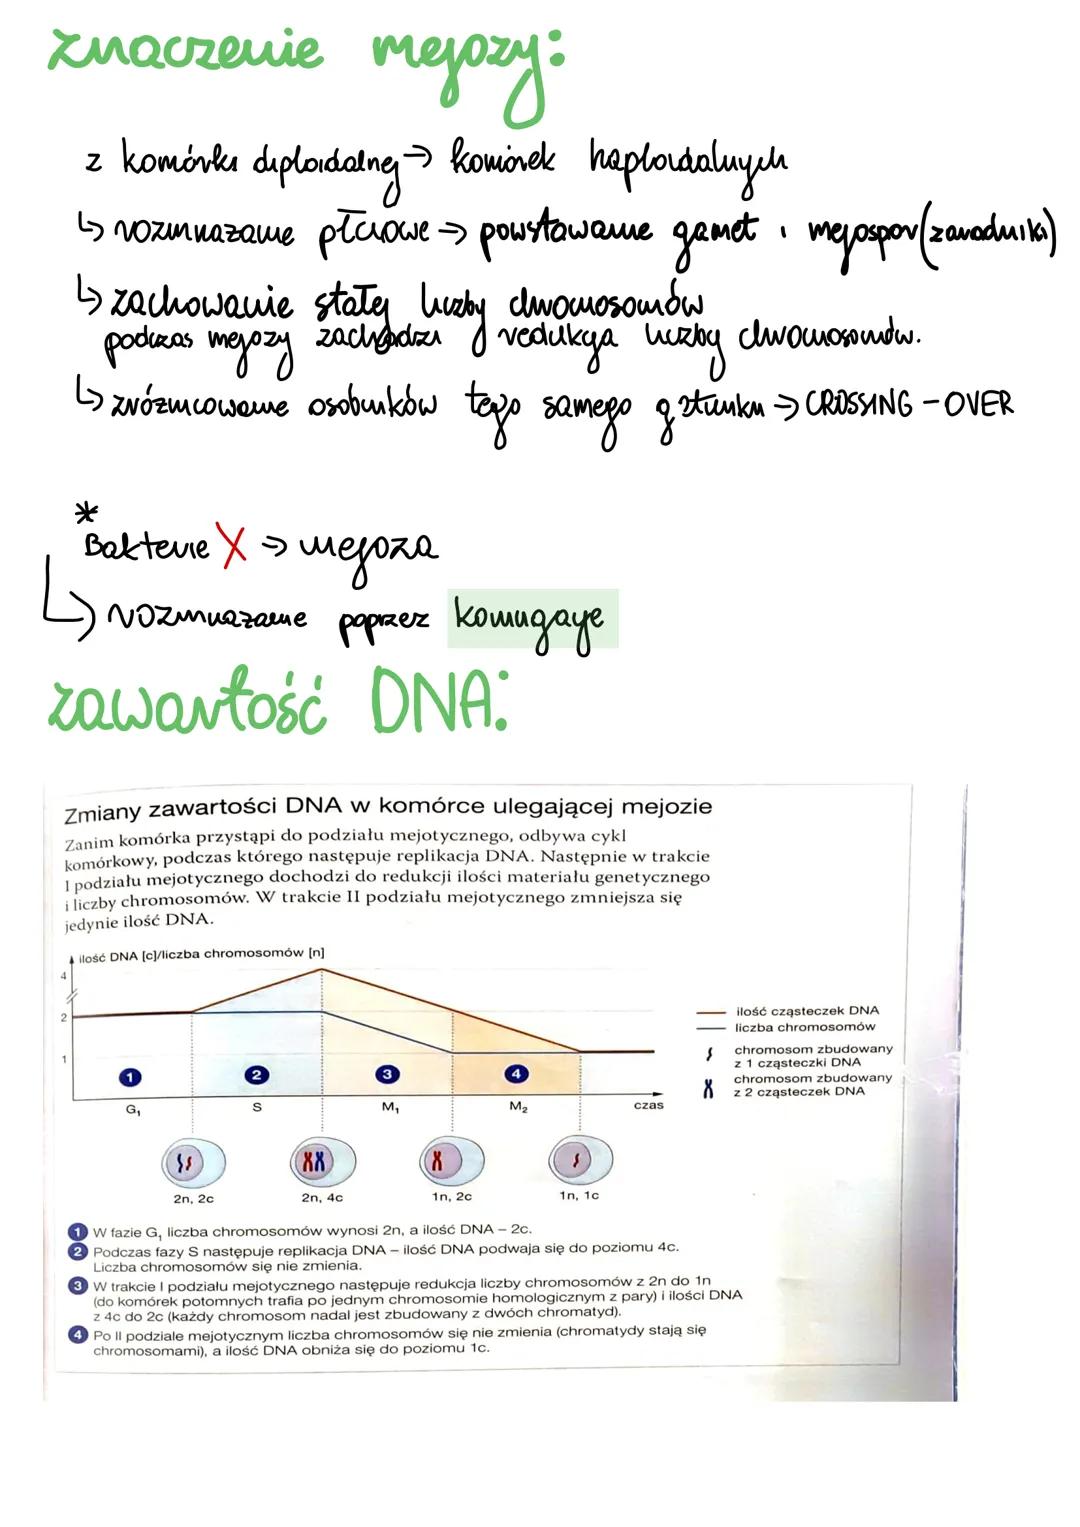 znaczenie mejozy:
z komórki diploidalnej → komórek haploidalnych
↳ rozmnażanie płciowe → powstawanie gamet i mejospor (zarodniki)
↳ zachowanie stałej liczby chromosomów
podczas mejozy zachodzi redukcja liczby chromosomów.
↳ zróżnicowanie osobników tego samego gatunku → CROSSING-OVER
*
Bakterie X → mejoza
↳ rozmnażanie poprzez koniugację
zawartość DNA:
Zmiany zawartości DNA w komórce ulegającej mejozie
Zanim komórka przystąpi do podziału mejotycznego, odbywa cykl
komórkowy, podczas którego następuje replikacja DNA. Następnie w trakcie
I podziału mejotycznego dochodzi do redukcji ilości materiału genetycznego
i liczby chromosomów. W trakcie II podziału mejotycznego zmniejsza się
jedynie ilość DNA.
ilość DNA [c]/liczba chromosomów [n]
4
2
1
1 2 3 4
G₁ S M₁ M₂ czas
ilość cząsteczek DNA
liczba chromosomów
chromosom zbudowany
z 1 cząsteczki DNA
chromosom zbudowany
z 2 cząsteczek DNA
2n, 2c 2n, 4c 1n, 2c 1n, 1c
1 W fazie G₁ liczba chromosomów wynosi 2n, a ilość DNA – 2c.
2 Podczas fazy S następuje replikacja DNA – ilość DNA podwaja się do poziomu 4c.
Liczba chromosomów się nie zmienia.
3 W trakcie I podziału mejotycznego następuje redukcja liczby chromosomów z 2n do 1n
(do komórek potomnych trafia po jednym chromosomie homologicznym z pary) i ilości DNA
z 4c do 2c (każdy chromosom nadal jest zbudowany z dwóch chromatyd).
4 Po II podziale mejotycznym liczba chromosomów się nie zmienia (chromatydy stają się
chromosomami), a ilość DNA obniża się do poziomu 1c.